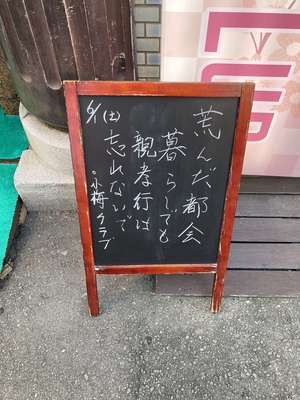 荒んだ都会
暮らしでも
親孝行は
忘れないで
6/1(土)
。小梅クラブ